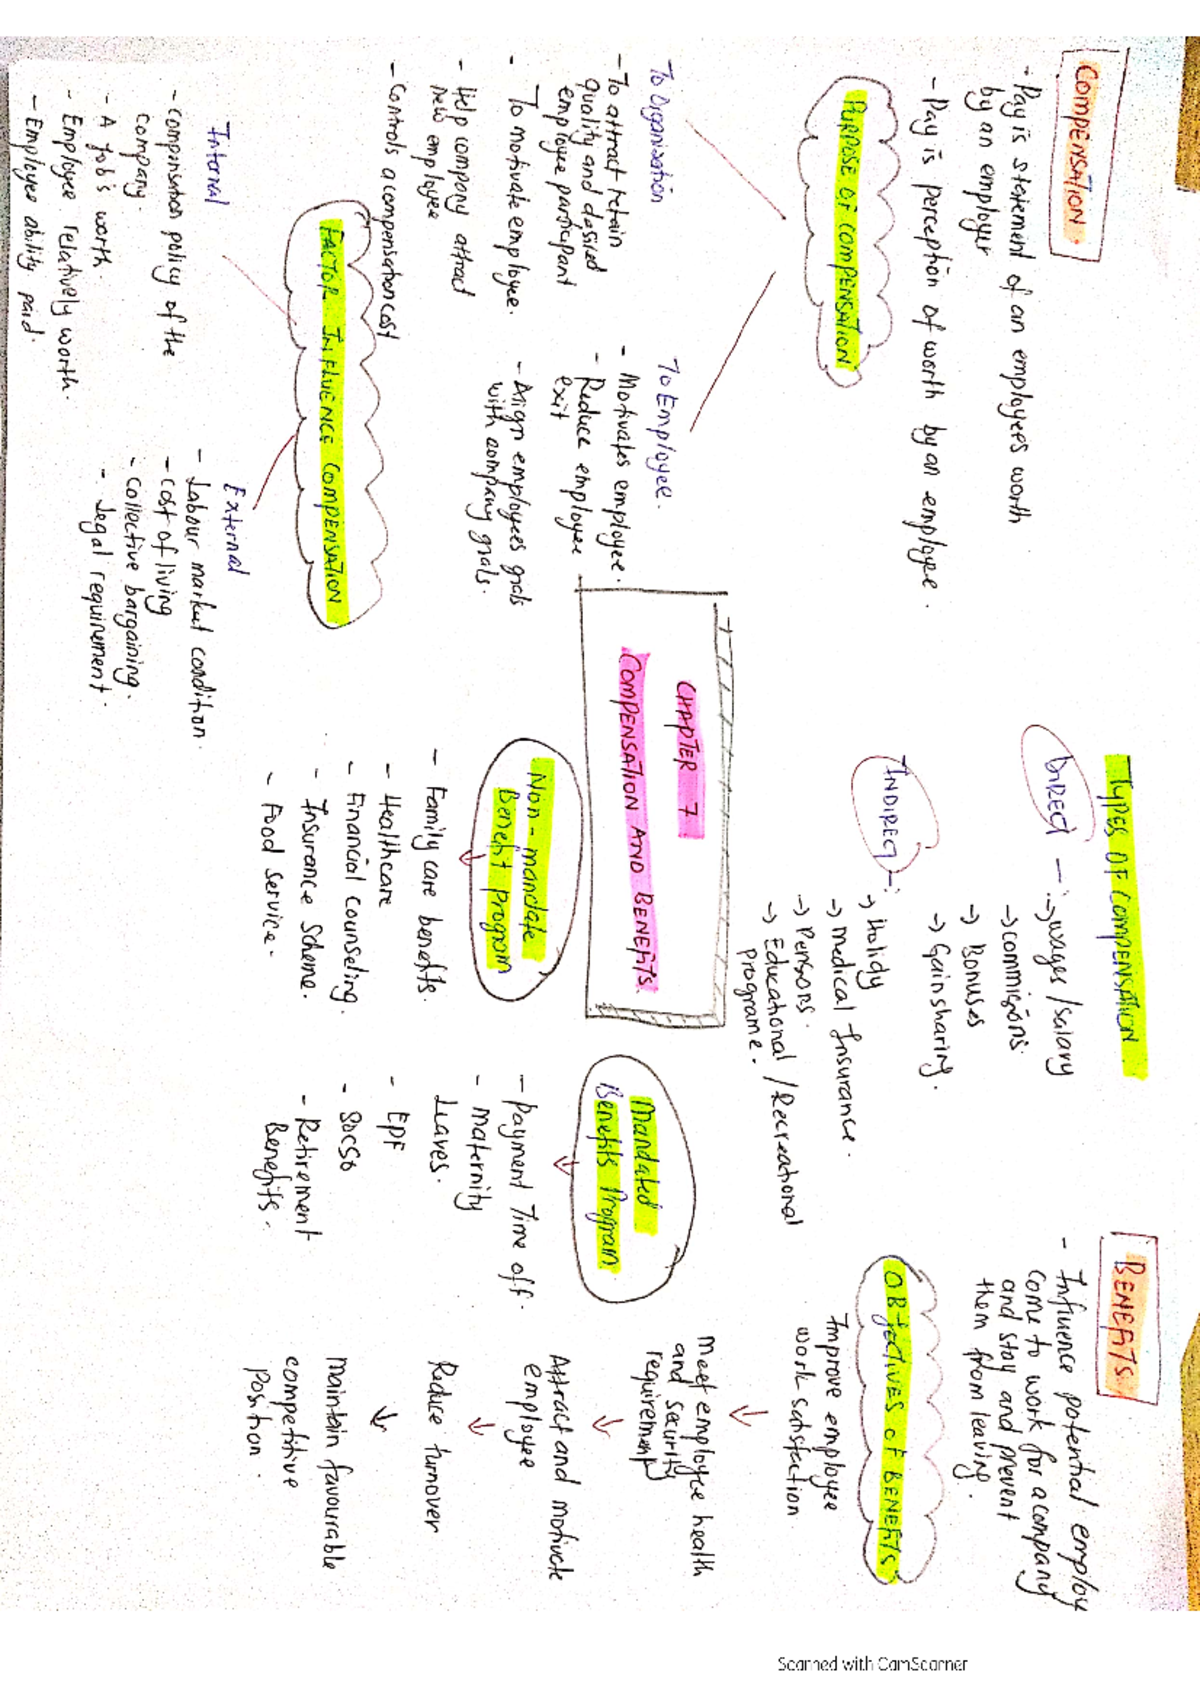 COMPENSATION
- Pay is statement of an employees worth
by an employer
- Pay is perception of worth by an employee.
PURPOSE OF COMPENSATION
To Organisation
- To attract retain
quality and desired
employee participant
- To motivate employee.
- Help company attract
new employee
- Controls a compensation cost
To Employee.
- Motivates employee.
- Reduce employee
exit
- Align employees goals
with company goals.
FACTOR INFLUENCE COMPENSATION
Internal
- compensation policy of the
company.
- A job's worth.
- Employee relatively worth.
- Employee ability paid.
External
- Labour market condition.
- cost of living
- collective bargaining.
- legal requirement.
TYPES OF COMPENSATION
DIRECT -: → wages / salary
→ commissions.
→ Bonuses
→ Gainsharing.
INDIRECT -:
→ Holidy
→ medical Insurance.
→ Pensions.
→ Educational / Recreational
Programe.
CHAPTER 7
COMPENSATION AND BENEFITS.
Non-mandate
Benefit program
- Family care benefits.
- Healthcare
- Financial counseling.
- Insurance Scheme.
- Food service.
Mandated
Benefits Program.
- Payment Time off.
- maternity
Leaves.
- EPF
- SOCSO
- Retirement
Benefits.
BENEFITS.
- Influence potential employ
come to work for a company
and stay and prevent
them from leaving.
OBJECTIVES OF BENEFITS
Improve employee
work satisfaction.
↓
Meet employee health
and security
requirement
↓
Attract and motivate
employee
↓
Reduce turnover
↓
maintain favourable
competitive
Position.
Scanned with CamScanner